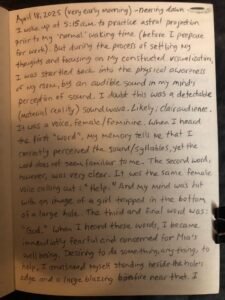 April 18, 2025 (very early morning) - nearing dawn
I woke up at 5:15a.m. to practice astral projection
prior to my "normal" waking time (before I prepare
for work). But during the process of settling my
thoughts and focusing on my constructed visualization,
I was startled back into the physical awareness
of my room, by an audible sound in my mind's
perception of sound. I doubt this was a detectable
(material reality) sound wave. Likely, clairaudience.
It was a voice, female/feminine. When I heard
the first "word", my memory tells me that I
correctly perceived the sound/syllables, yet the
word does not seem familiar to me. The second word,
however, was very clear. It was the same female
voice calling out: "Help." And my mind was hit
with an image of a girl trapped in the bottom
of a large hole. The third and final word was:
"God." When I heard these words, I became
immediately fearful and concerned for
wellbeing. Desiring to do something, anything, to
help, I imagined myself standing beside the hole's
edge and a large blazing bonfire near that. I